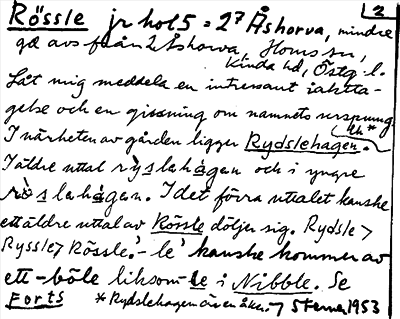 Rössle jr hol 5 = 2⁷ Åshorva, mindre 2
gd avs från 2 Åshorva, Horns sn,
Kinda hd, Östg. l.
Låt mig meddela en intressant iaktta-
gelse och en gissning om namnets ursprung
I närheten av gården ligger Rydslehagen.*
I äldre uttal rỳslahågen och i yngre
rö̀slahågen. I det förra uttalet kanske
ett äldre uttal av Rössle döljer sig. Rydsle >
Ryssle > Rössle? -le kanske kommer av
ett -böle liksom -le i Nibble. Se
Forts * Rydslehagen är en åker. 5 1953